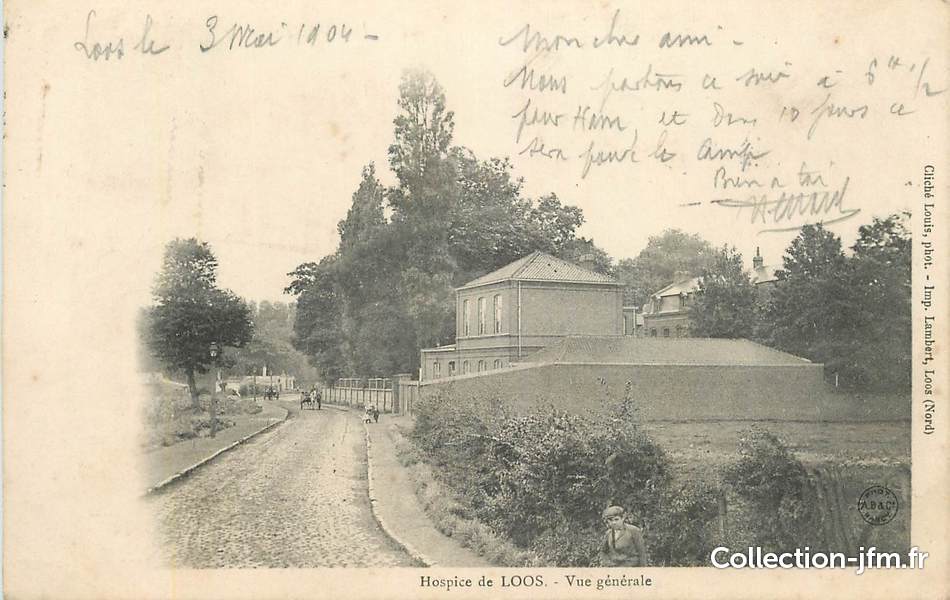 Loos le 3 Mai 1904 -
Mon cher ami -
Nous partons ce soir à 6 H 1/2
pour Ham, et dans 10 jours ce
sera pour le Camp
Bien à toi
Cliché Louis, phot. - Imp. Lambert, Loos (Nord)
PHOT
A.B & Cie
NANCY
Hospice de LOOS. - Vue générale
Collection-jfm.fr